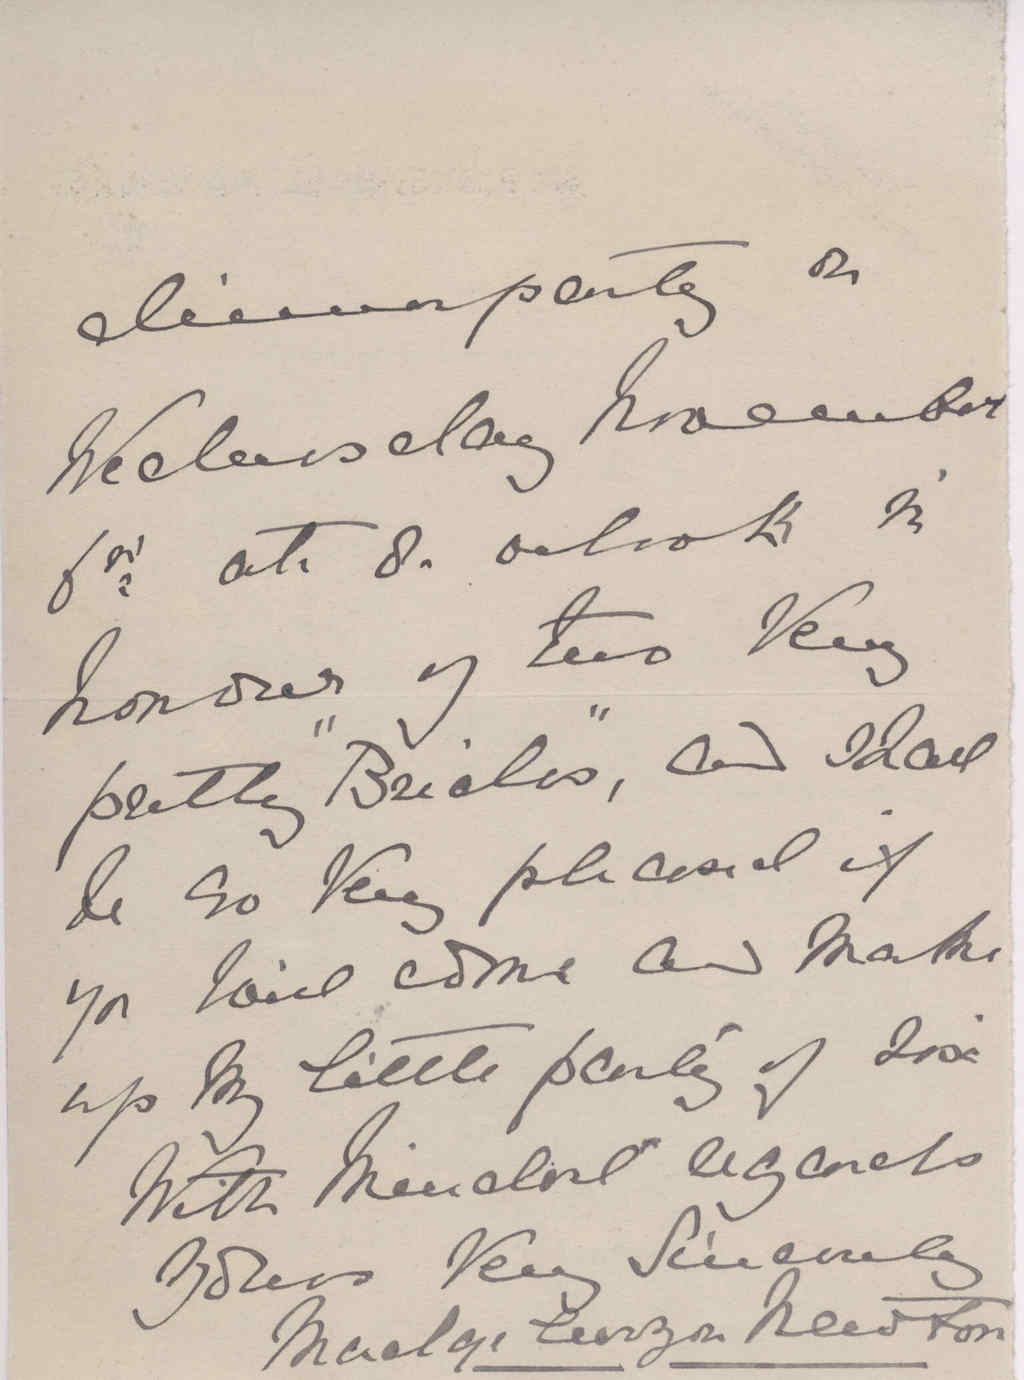 dinner party on
Wednesday November
6th at 8. oclock in
honour of two Very
pretty "Brides", and shall
be so Very pleased if
you will come and make
up my little party of six
With kindest regards
Yours Very Sincerely
Madge Curzon Newton